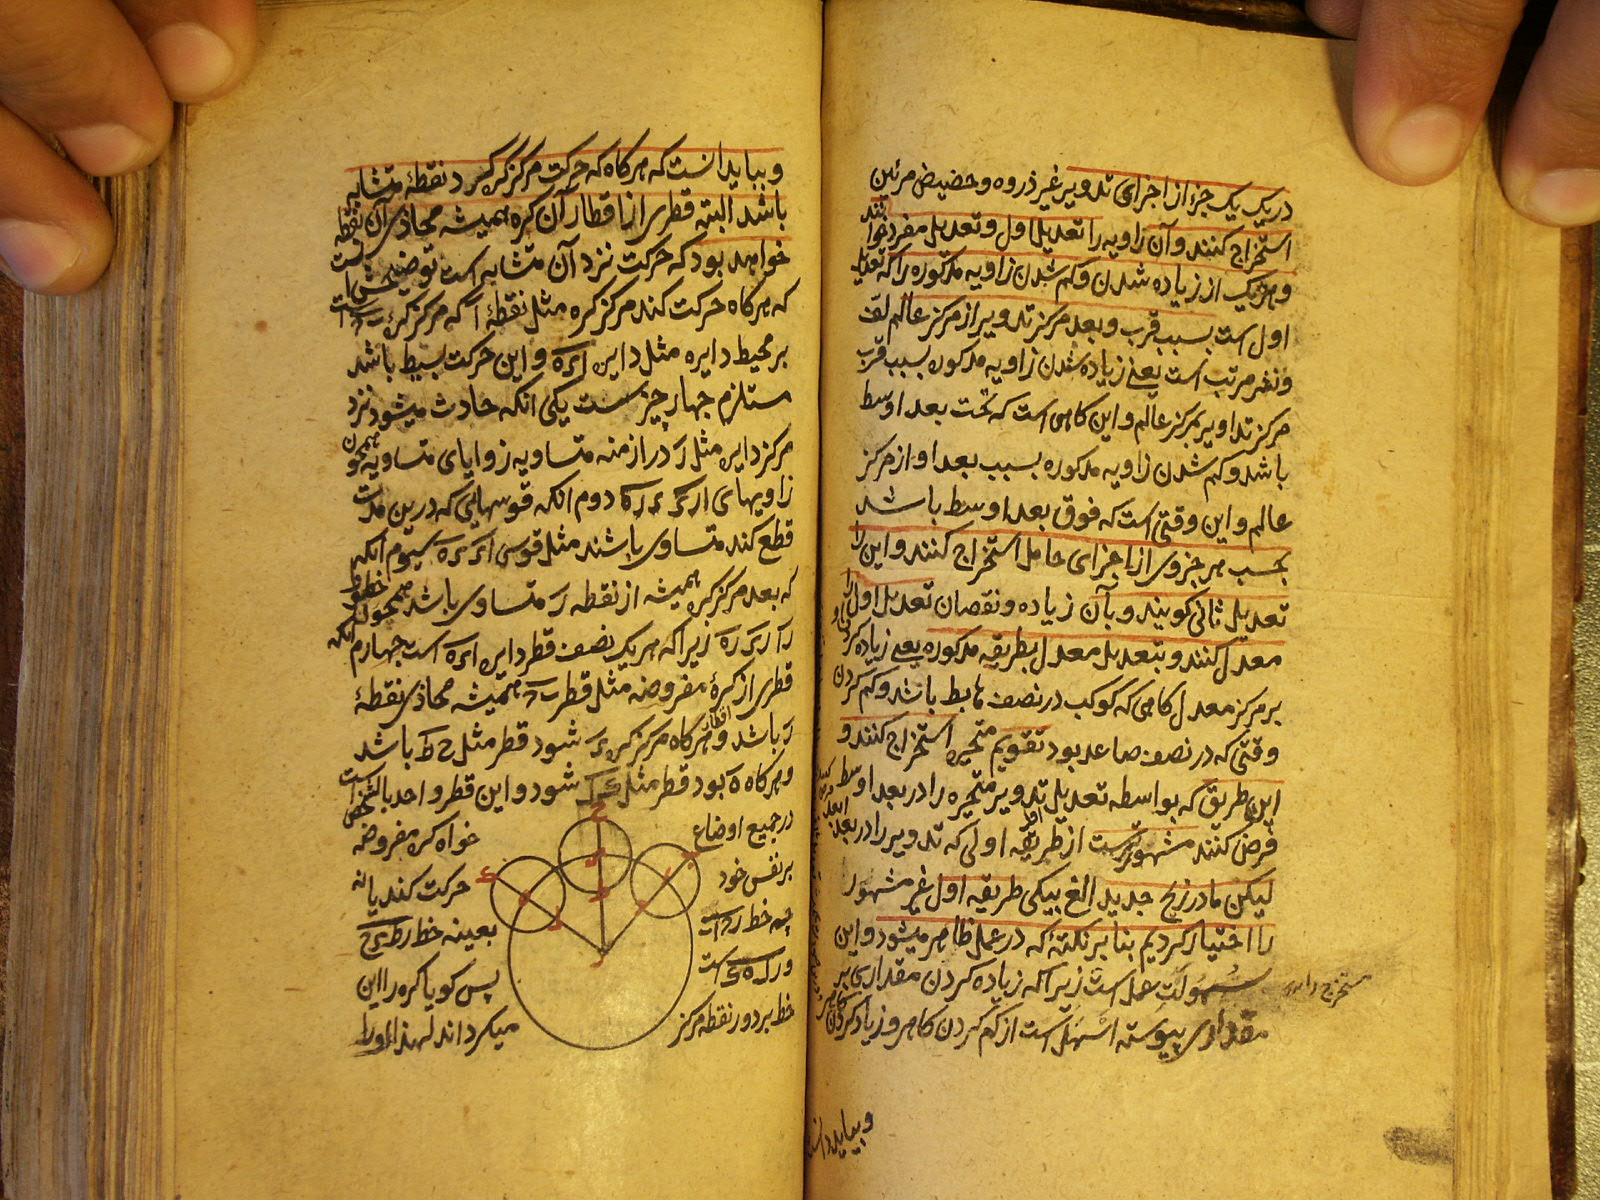 در یک یک جزء از اجزای تدویر غیر ذروه و حضیض مرئین
استخراج کنند و آن زاویه را تعدیل اول و تعدیل مفرد خوانند
و هر یک از زیاده شدن و کم شدن زاویه مذکوره را که تعدیل
اول است بسبب قرب و بعد مرکز تدویر از مرکز عالم
مرتب است یعنی زیاده شدن زاویه مذکوره بسبب قرب
مرکز تداویر بمرکز عالم و این کاهی است که تحت بعد اوسط
باشد و کم شدن زاویه مذکوره بسبب بعد او از مرکز
عالم و این وقتی است که فوق بعد اوسط باشد
بحسب هر جزوی از اجزای حامل استخراج کنند و این را
تعدیل ثانی کویند و بآن زیاده و نقصان تعدیل اول را
معدل کنند و بتعدیل معدل بطریقه مذکوره یعنی زیاده کردن
بر مرکز معدل کاهی که کوکب در نصف هابط باشد و کم کردن
وقتی که در نصف صاعد بود تقویم متحیره استخراج کنند و
این طریق که بواسطه تعدیل تدویر متحیره را در بعد اوسط
فرض کنند مشهورترست از طریقه اولی که تدویر را در بعد ابعد
لیکن ما در زیج جدید الغ بیکی طریقه اول غیر مشهور
را اختیار کردیم بنا بر نکتهٔ که در عمل ظاهر میشود و این
سهولت عمل است زیرا که زیاده کردن مقداری بر
مقداری پیوسته اسهل است از کم کردن کاهی و زیاد کردن
مستخرج
و بباید دانست
و بباید دانست که هر کاه که حرکت مرکز کره کرد نقطهٔ متشابه
باشد البته قطری از اقطار آن کره همیشه محاذی آن نقطه
خواهد بود که حرکت نزد آن متشابه است توضیحش آنست
که هر کاه حرکت کند مرکز کره مثل نقطهٔ ا که مرکز کره
بر محیط دایره مثل دایره و این حرکت بسیط باشد
مستلزم چهار چیزست یکی انکه حادث میشود نزد
مرکز دایره مثل ر در ازمنه متساویه زوایای متساویه همچون
زاویهای دوم انکه قوسهایی که درین مدت
قطع کند متساوی باشند مثل قوسی سیوم انکه
که بعد مرکز کره همیشه از نقطه ر متساوی باشد همچون خطوط
زیرا که هر یک نصف قطر دایره است چهارم انکه
قطری از کرهٔ مفروضه مثل قطر همیشه محاذی نقطهٔ
ر باشد و هر کاه مرکز کره شود قطر مثل ح ط باشد
و هر کاه ه بود قطر مثل شود و این قطر واحد بالشخص است
در جمیع اوضاع خواه کره مفروضه
بر نفس خود حرکت کند یا نه
چه خط بعینه خط
پس کویا کره را این
خط بر دور نقطه مرکز میکرداند لهذا او را